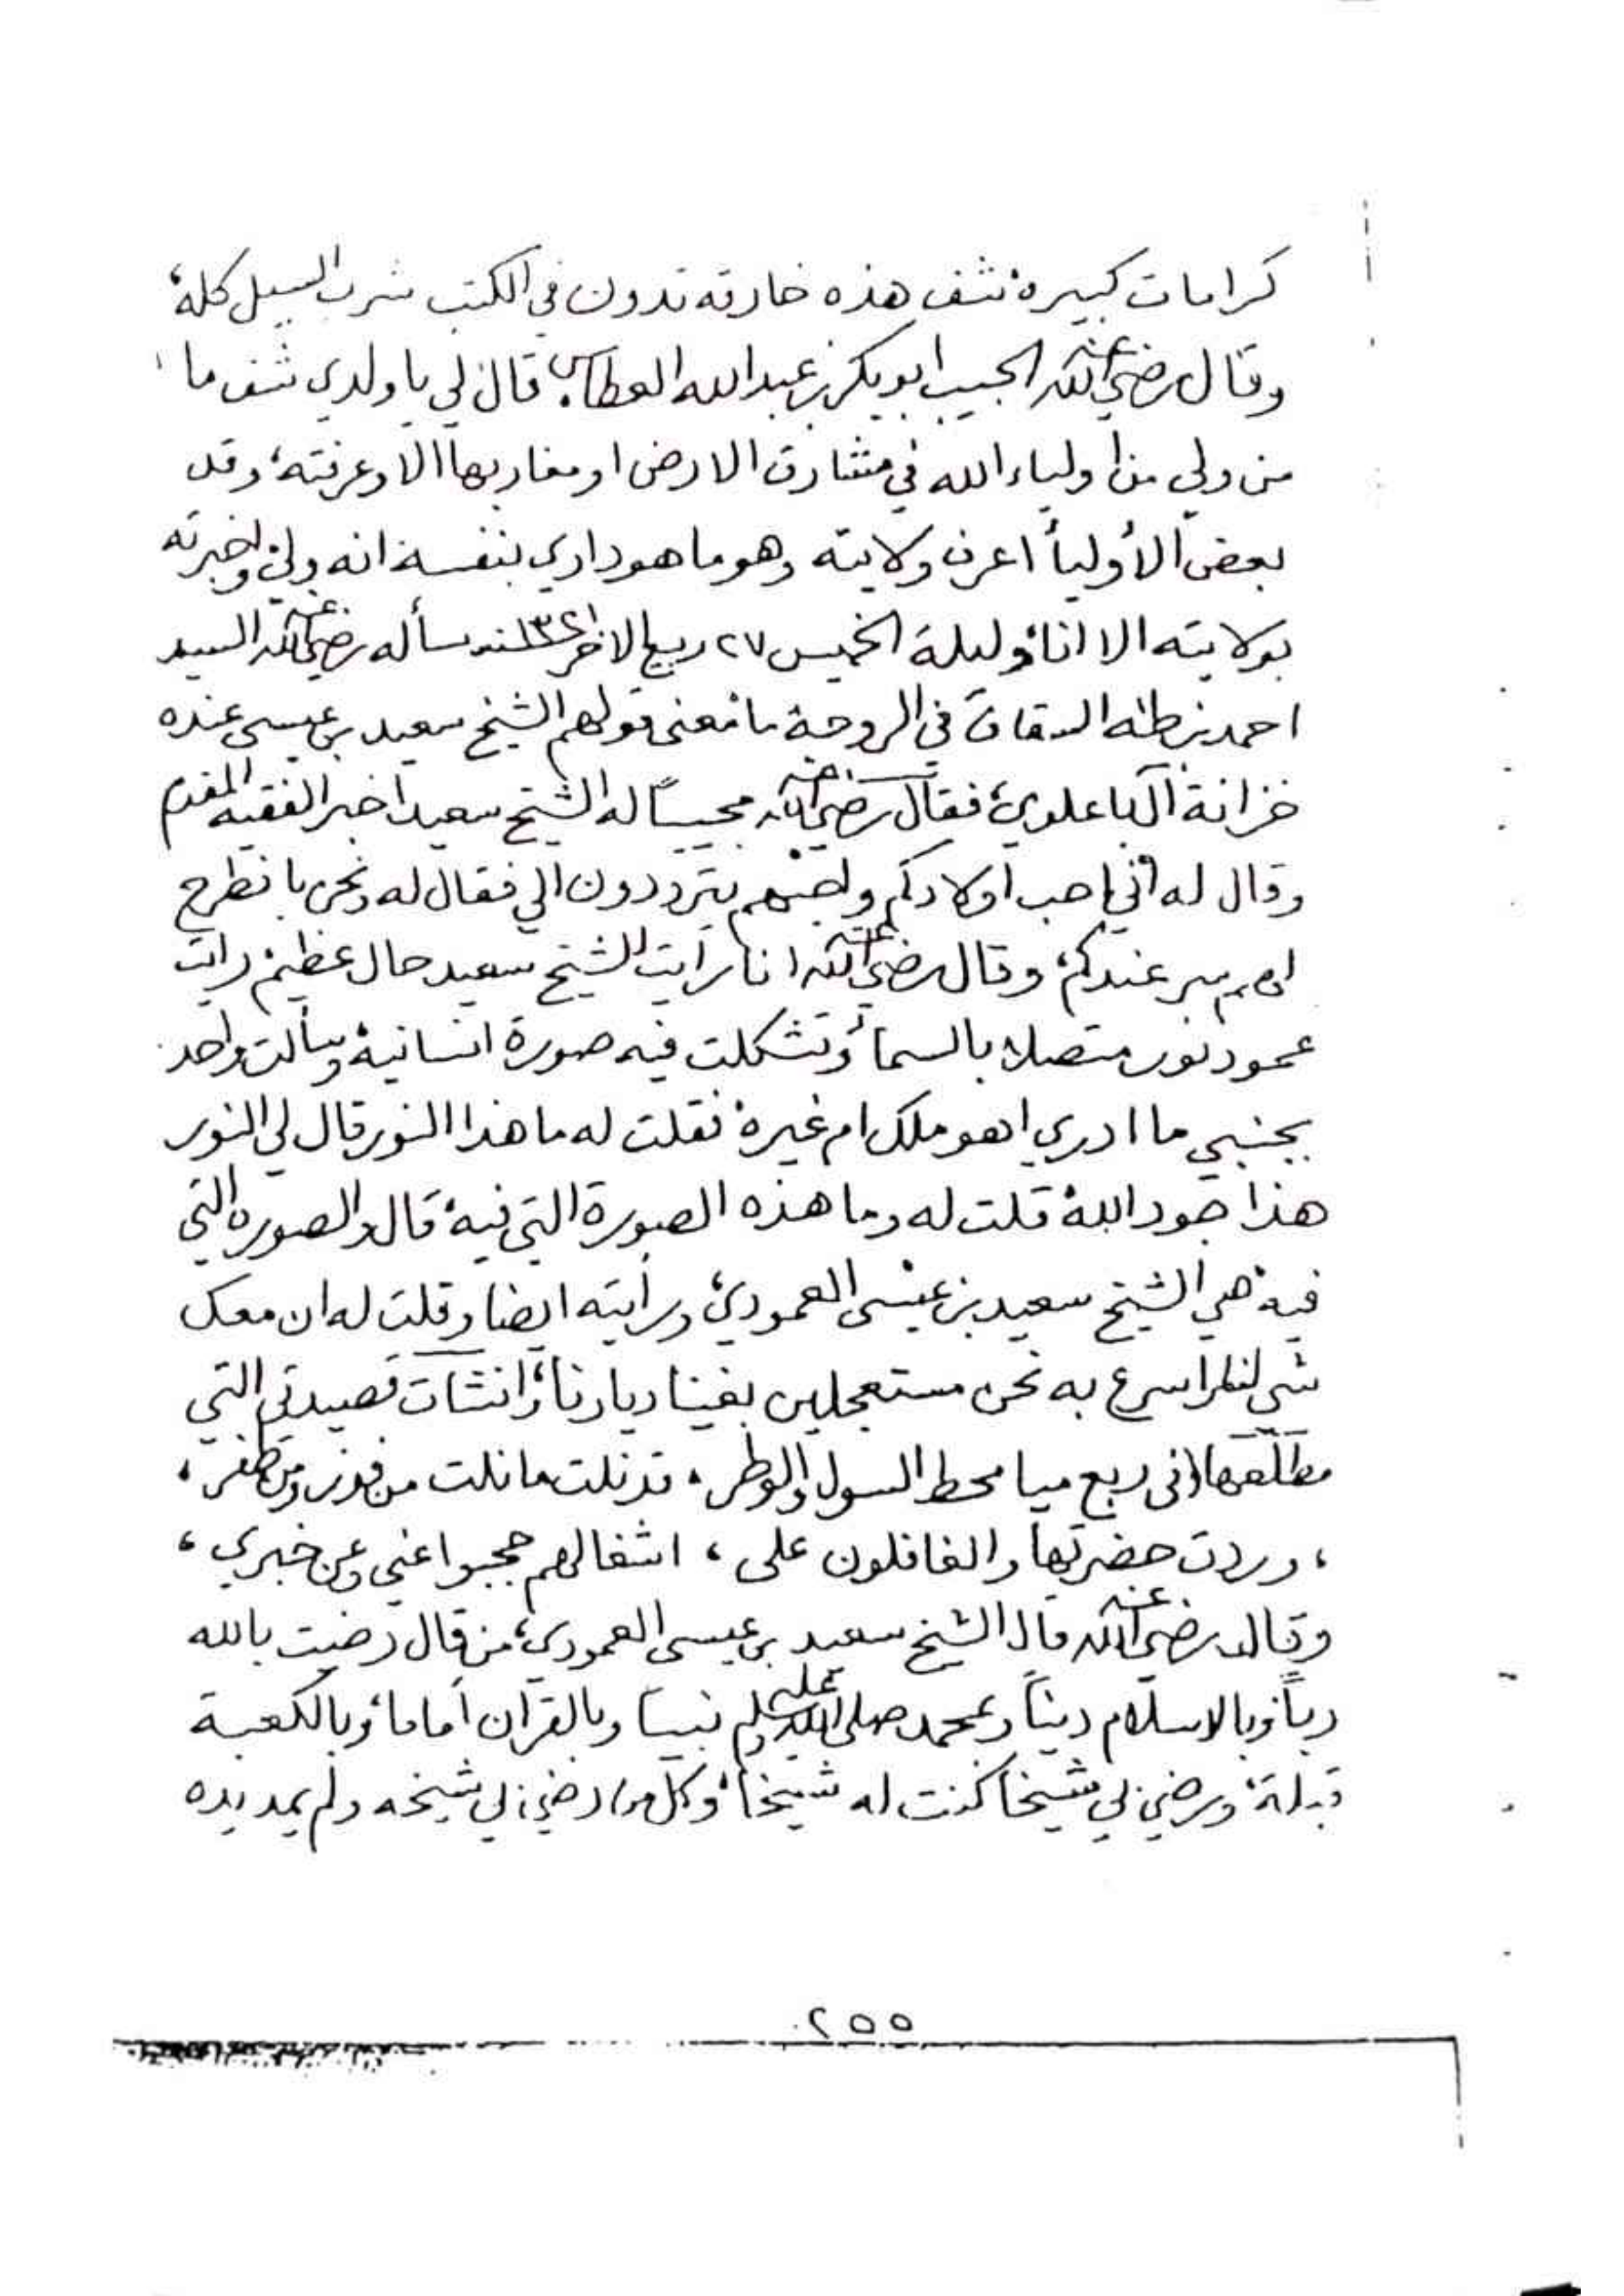 كرامات كبيرة شف هذه خارقه تدون في الكتب شرب السيل كله،
وقال رضي الله عنه الحبيب ابو بكر بن عبدالله العطاس قال لي يا ولدي شف ما
من ولي من أولياء الله في مشارق الارض او مغاربها الا وعرفته، وقد
بعض الأولياء اعرف ولايته وهو ما هو داري بنفسه انه ولي واخبرته
بولايته الا انا، وليلة الخميس ٢٧ ربيع الاخر سأله رضي الله عنه السيد
احمد بن طه السقاف في الروحة ما معنى قولهم الشيخ سعيد بن عيسى عنده
خزانة آل باعلوي، فقال رضي الله عنه مجيباً له الشيخ سعيد اخبر الفقيه المقدم
وقال له اني احب اولادكم يترددون الي فقال له ونحن با نطرح
سر عندكم، وقال رضي الله عنه انا رأيت للشيخ سعيد حال عظيم رايت
عمود نور متصل بالسماء وتشكلت فيه صورة انسانية وسألت واحد
بجنبي ما ادري اهو ملك ام غيره فقلت له ما هذا النور قال لي النور
هذا جود الله قلت له وما هذه الصورة التي فيه قال والصوره التي
فيه هي الشيخ سعيد بن عيسى العمودي، ورأيته ايضا وقلت له ان معك
شي لنا اسرع به نحن مستعجلين بغينا ديارنا، وانشات قصيدتي التي
مطلعها ربع ميا محط السول والوطر، قد نلت ما نلت من فوز ومن ظفر،
، وردت حضرتها والغافلون على ، اشغالهم حجبوا عني وعن خبري ،
وقال رضي الله عنه قال الشيخ سعيد بن عيسى العمودي، من قال رضيت بالله
رباً وبالاسلام ديناً وبمحمد صلى الله عليه وسلم نبياً وبالقرآن أماما، وبالكعبة
قبلة، ورضي بي شيخا كنت له شيخا، وكل من رضي بي شيخه ولم يمد يده
٢٥٥